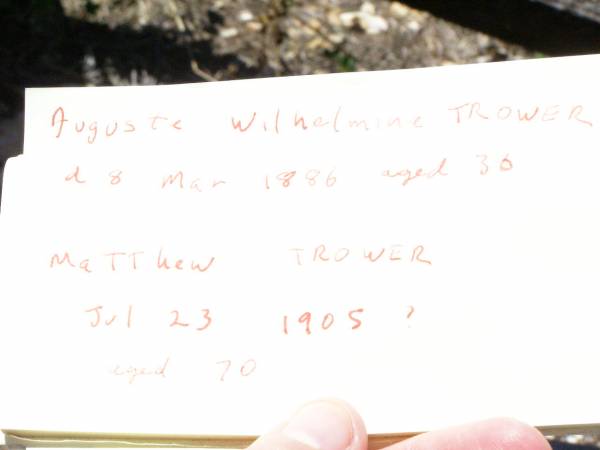 Auguste Wilhelmine TROWER
d 8 Mar 1886 aged 36
MaTThew TROWER
Jul 23 1905 ?
aged 70